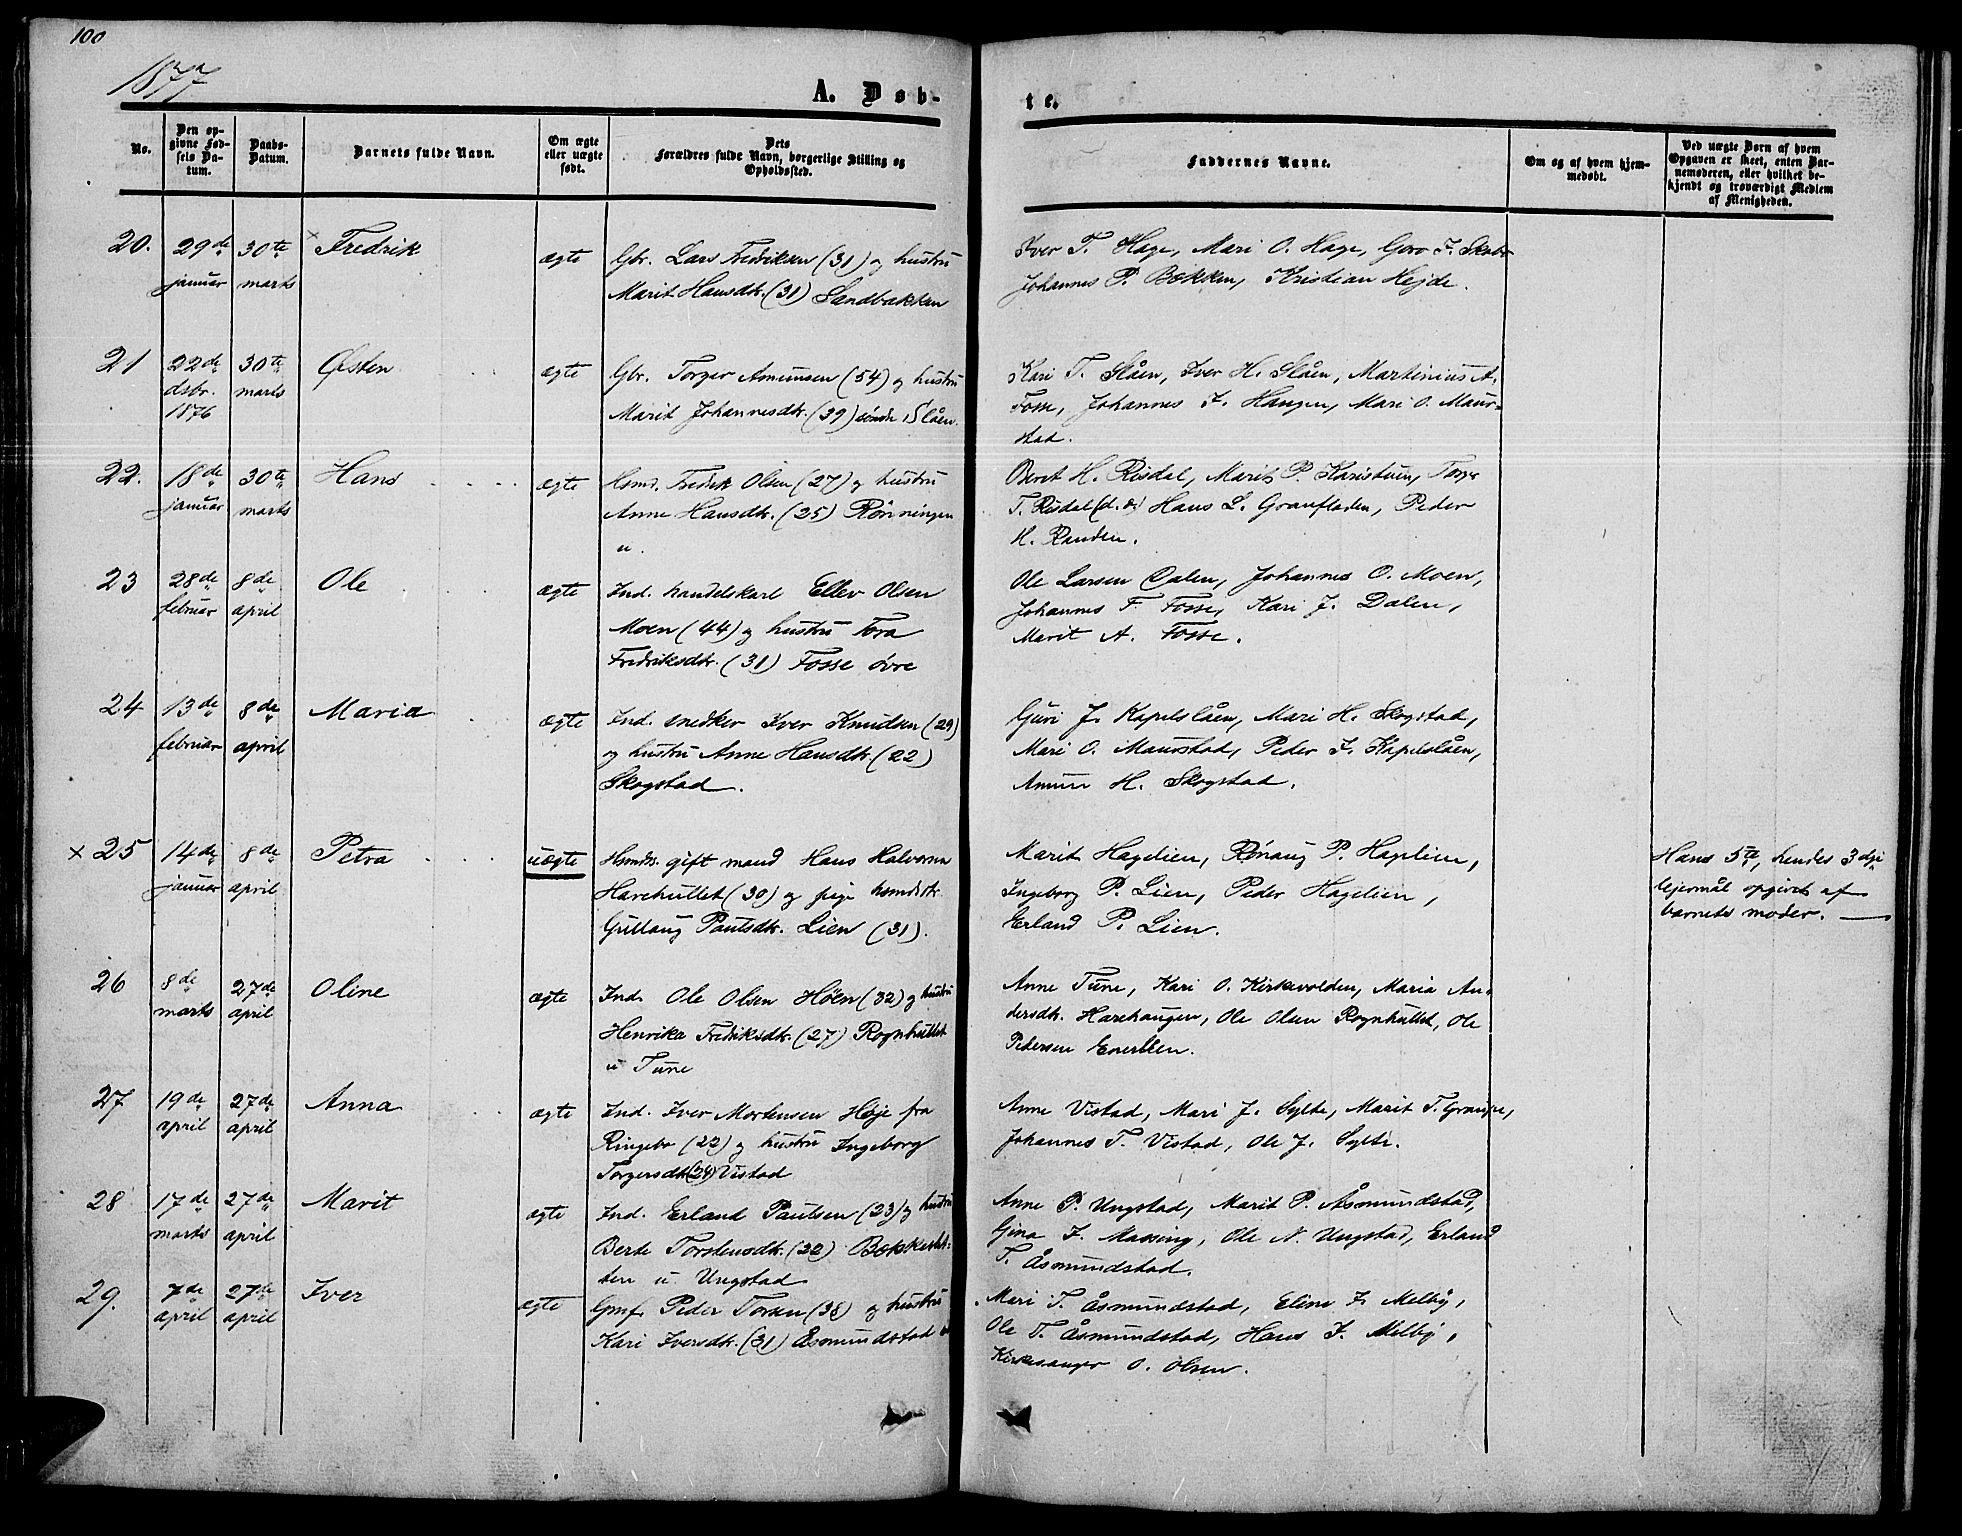 100
1877
A. Døb-
te.
No.
Den op-
givne Fød-
sels Da-
tum.
Daabs-
Datum.
Barnets fulde Navn.
Om ægte
eller uægte
født.
Dets
Forældres fulde Navn, borgerlige Stilling og
Opholdssted.
Faddernes Navne.
Om og af hvem hjem-
medøbt.
Ved uægte Børn af hvem
Opgaven er skeet, enten Bar-
nemoderen, eller hvilket be-
kjendt og troværdigt Medlem
af Menigheden.
20. 29de januar 30te marts × Fredrik ægte
Gbr. Lars Fredriksen (31) og hustru
Marit Hansdtr. (31) Sandbakken
Iver T. Hage, Mari O. Hage, Goro F.
Johannes P. Bækken, Kristian Hejde.
21 22de dsbr. 1876 30te marts Østen ægte
Gbr. Torger Amunsen (54) og hustru
Marit Johannesdtr. (39) søndre Slåen.
Kari T. Slåen, Iver H. Slåen, Martinius A.
Fosse, Johannes I. Haugen, Mari O. Maur-
stad.
22. 18de januar 30te marts Hans ægte
Hsmd. Fredrik Olsen (27) og hustru
Anne Hansdtr. (25) Rønningen
u.
Beret H. Risdal, Marit P. Karistuen, Torger
T. Risdal (d. æ) Hans L. Granfladen, Peder
H. Randen.
23 28de februar 8de april Ole ægte
Ind. handelskarl Ellev Olsen
Moen (44) og hustru Tora
Fredriksdtr. (31) Fosse øvre
Ole Larsen Dalen, Johannes O. Moen,
Johannes F. Fosse, Kari J. Dalen,
Marit A. Fosse.
24 13de februar 8de april Maria ægte
Ind. snedker Iver Knudsen (29)
og hustru Anne Hansdtr. (22)
Skogstad.
Guri J. Kapelslåen, Mari H. Skogstad,
Mari O. Maurstad, Peder I. Kapelslåen,
Amun H. Skogstad.
× 25 14de januar 8de april Petra uægte
Hsmds. gift mand Hans Halvorsen
Harehullet (30) og pige hsmdsdtr.
Gullaug Paulsdtr. Lien (31).
Marit Hagelien, Rønaug P. Hagelien,
Ingeborg P. Lien, Peder Hagelien,
Erland P. Lien.
Hans 5te, hendes 3die
lejermål opgivet af
barnets moder.
26 8de marts 27de april Oline ægte
Ind. Ole Olsen Høen (32) og hustru
Henrika Fredriksdtr. (27) Rognhullet
u Tune
Anne Tune, Kari O. Kirkevolden, Maria An-
dersdtr. Harehaugen, Ole Olsen Rognhullet, Ole
Pedersen
27 19de april 27de april Anna ægte
Ind. Iver Mortensen Høje fra
Ringebo (22) og hustru Ingeborg
Torgersdtr (24) Vistad
Anne Vistad, Mari J. Sylte, Marit T.
Johannes T. Vistad, Ole J. Sylte.
28 17de marts 27de april Marit ægte
Ind. Erland Paulsen (23) og hustru
Berte Torstensdtr. (22)
ten u. Ungstad
Anne P. Ungstad, Marit P. Åsmundstad,
Gina I. Massing, Ole N. Ungstad, Erland
T. Åsmundstad.
29. 7de april 27de april Iver ægte
Gmf. Peder Torsen (38) og hustru
Kari Iversdtr. (31) Åsmundstad
Mari T. Åsmundstad, Eline I. Melby,
Ole T. Åsmundstad, Hans I. Melby,
Kirkesanger O. Olsen.